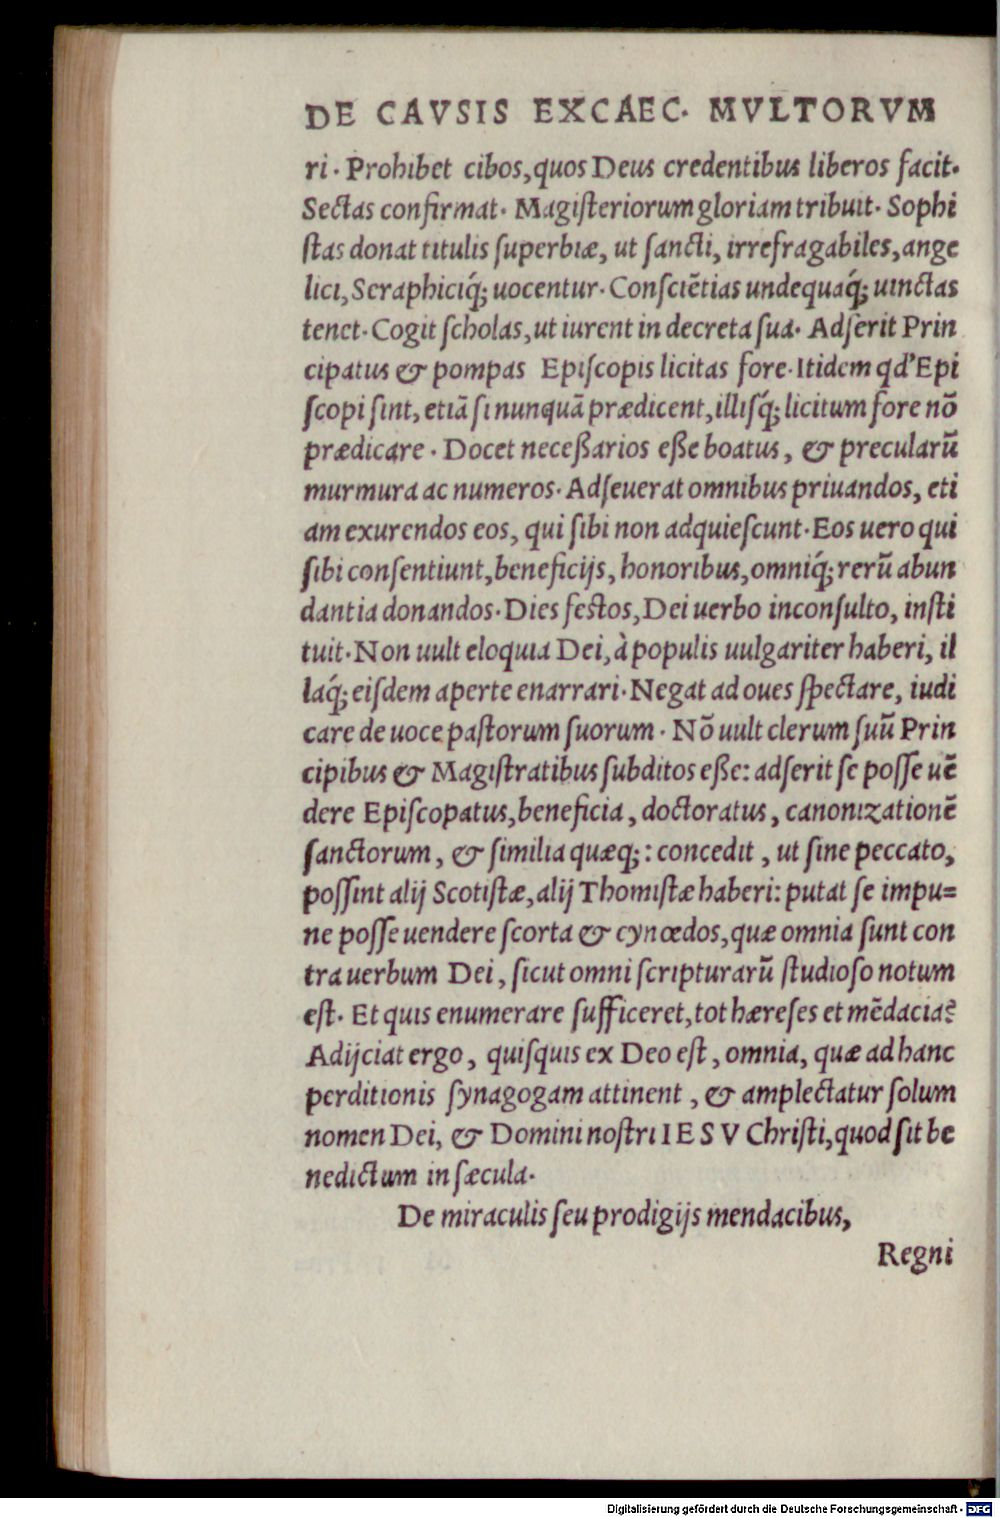 DE CAVSIS EXCAEC. MVLTORVM
ri. Prohibet cibos, quos Deus credentibus liberos facit.
Sectas confirmat. Magiſteriorum gloriam tribuit. Sophi
ſtas donat titulis ſuperbiæ, ut ſancti, irrefragabiles, ange
lici, Seraphiciq́; uocentur. Conſciẽtias undequaq́; uinctas
tenet. Cogit ſcholas, ut iurent in decreta ſua. Adſerit Prin
cipatus & pompas Epiſcopis licitas fore. Itidem qd' Epi
ſcopi ſint, etiã ſi nunquã prædicent, illiſq́; licitum fore nõ
prædicare. Docet neceßarios eße boatus, & precularũ
murmura ac numeros. Adſeuerat omnibus priuandos, eti
am exurendos eos, qui ſibi non adquieſcunt. Eos uero qui
ſibi conſentiunt, beneficijs, honoribus, omniq́; rerũ abun
dantia donandos. Dies feſtos, Dei uerbo inconſulto, inſti
tuit. Non uult eloquia Dei, à populis uulgariter haberi, il
laq́; eiſdem aperte enarrari. Negat ad oues ſpectare, iudi
care de uoce paſtorum ſuorum. Nõ uult clerum ſuũ Prin
cipibus & Magiſtratibus ſubditos eße: adſerit ſe poſſe uẽ
dere Epiſcopatus, beneficia, doctoratus, canonizationẽ
ſanctorum, & ſimilia quæq;: concedit, ut ſine peccato,
poſſint alij Scotiſtæ, alij Thomiſtæ haberi: putat ſe impu=
ne poſſe uendere ſcorta & cynœdos, quæ omnia ſunt con
tra uerbum Dei, ſicut omni ſcripturarũ ſtudioſo notum
eſt. Et quis enumerare ſufficeret, tot hæreſes et mẽdacia?
Adijciat ergo, quiſquis ex Deo eſt, omnia, quæ ad hanc
perditionis ſynagogam attinent, & amplectatur ſolum
nomen Dei, & Domini noſtri IESV Chriſti, quod ſit be
nedictum in ſæcula.
De miraculis ſeu prodigijs mendacibus,
Regni
Digitalisierung gefördert durch die Deutsche Forschungsgemeinschaft - DFG